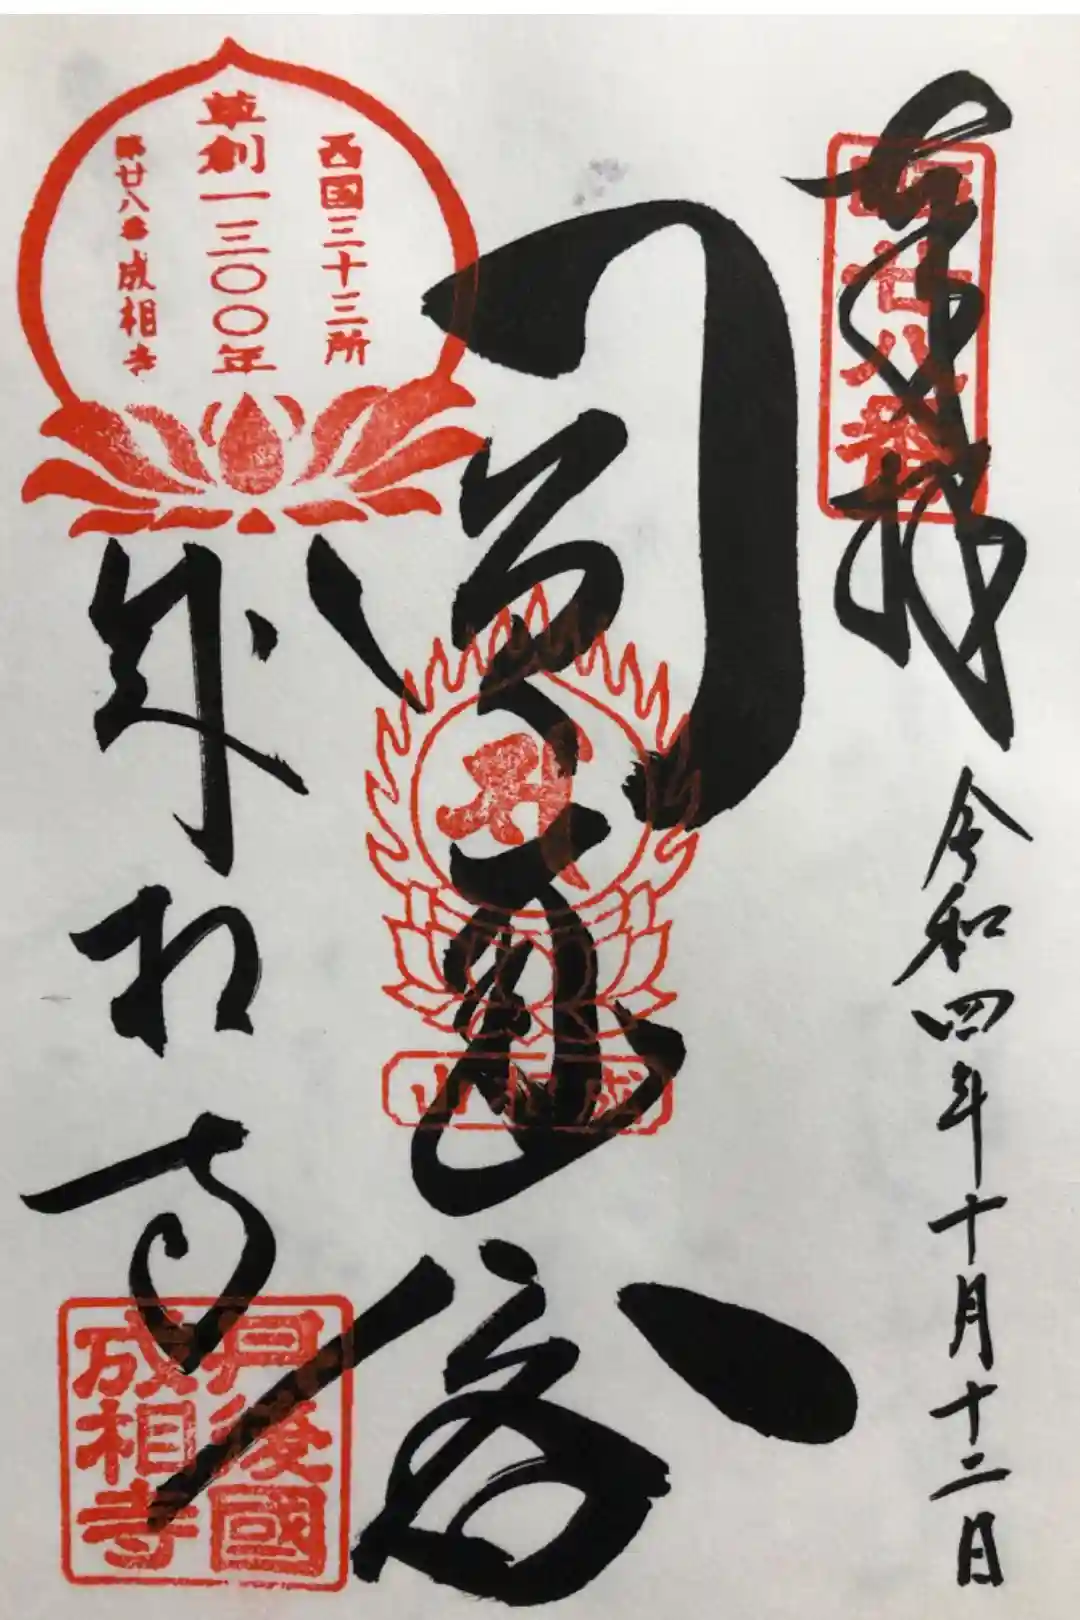 奉拝
廿八番
令和四年十月十二日
成相山
西国三十三所
草創一三〇〇年
第廿八番 成相寺
成相寺
丹後國
成相寺